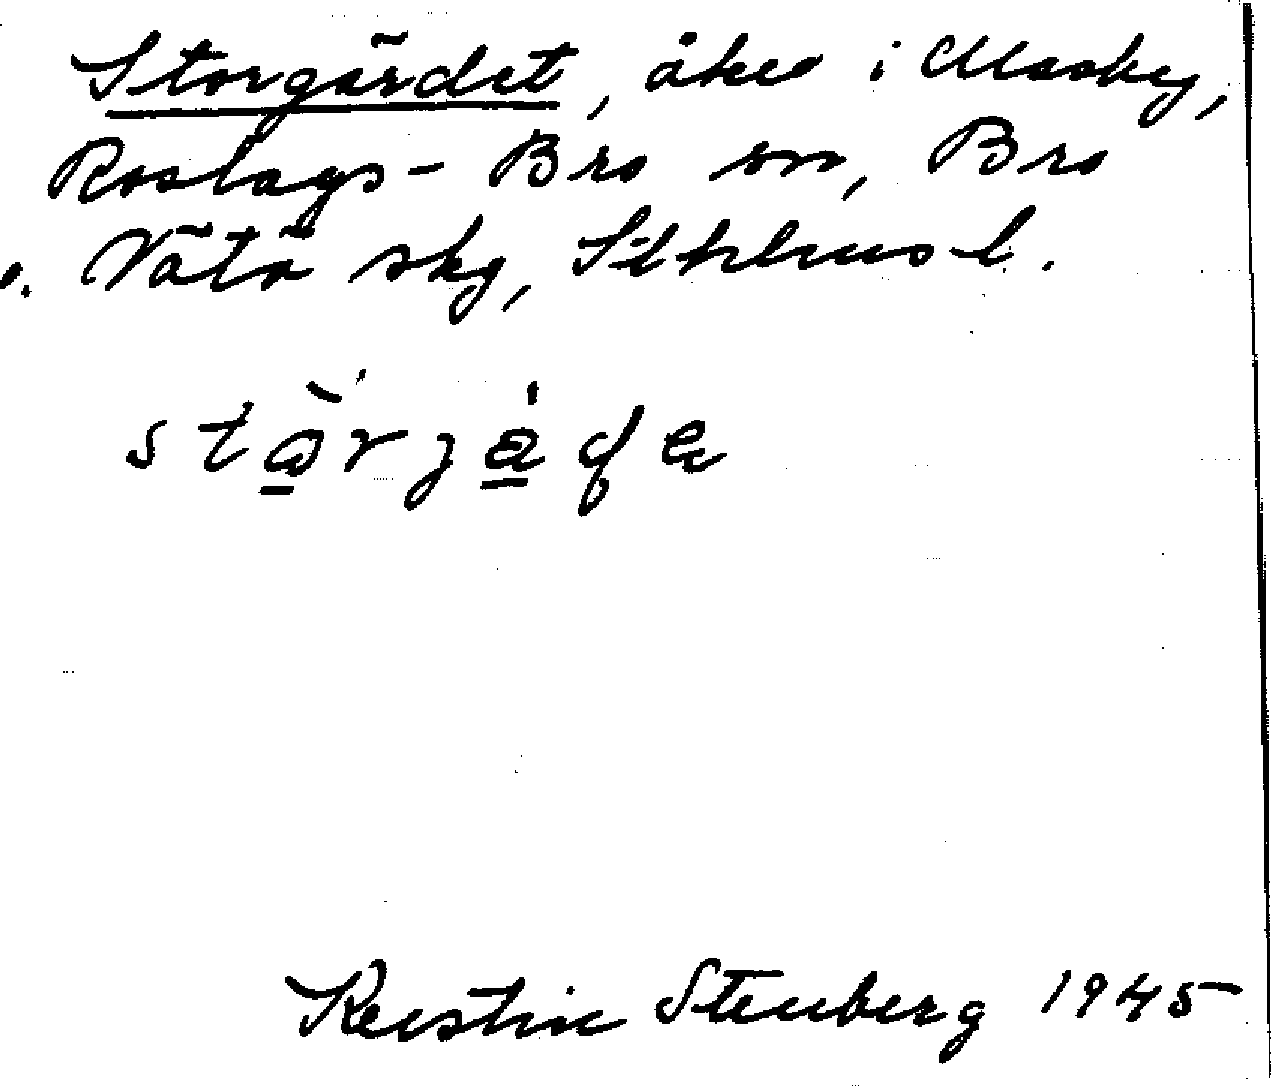 Storgärdet, åker i Massby,
Roslags-Bro sn, Bro
o. Vätö skg, Sthlms l.
Kerstin Stenberg 1945